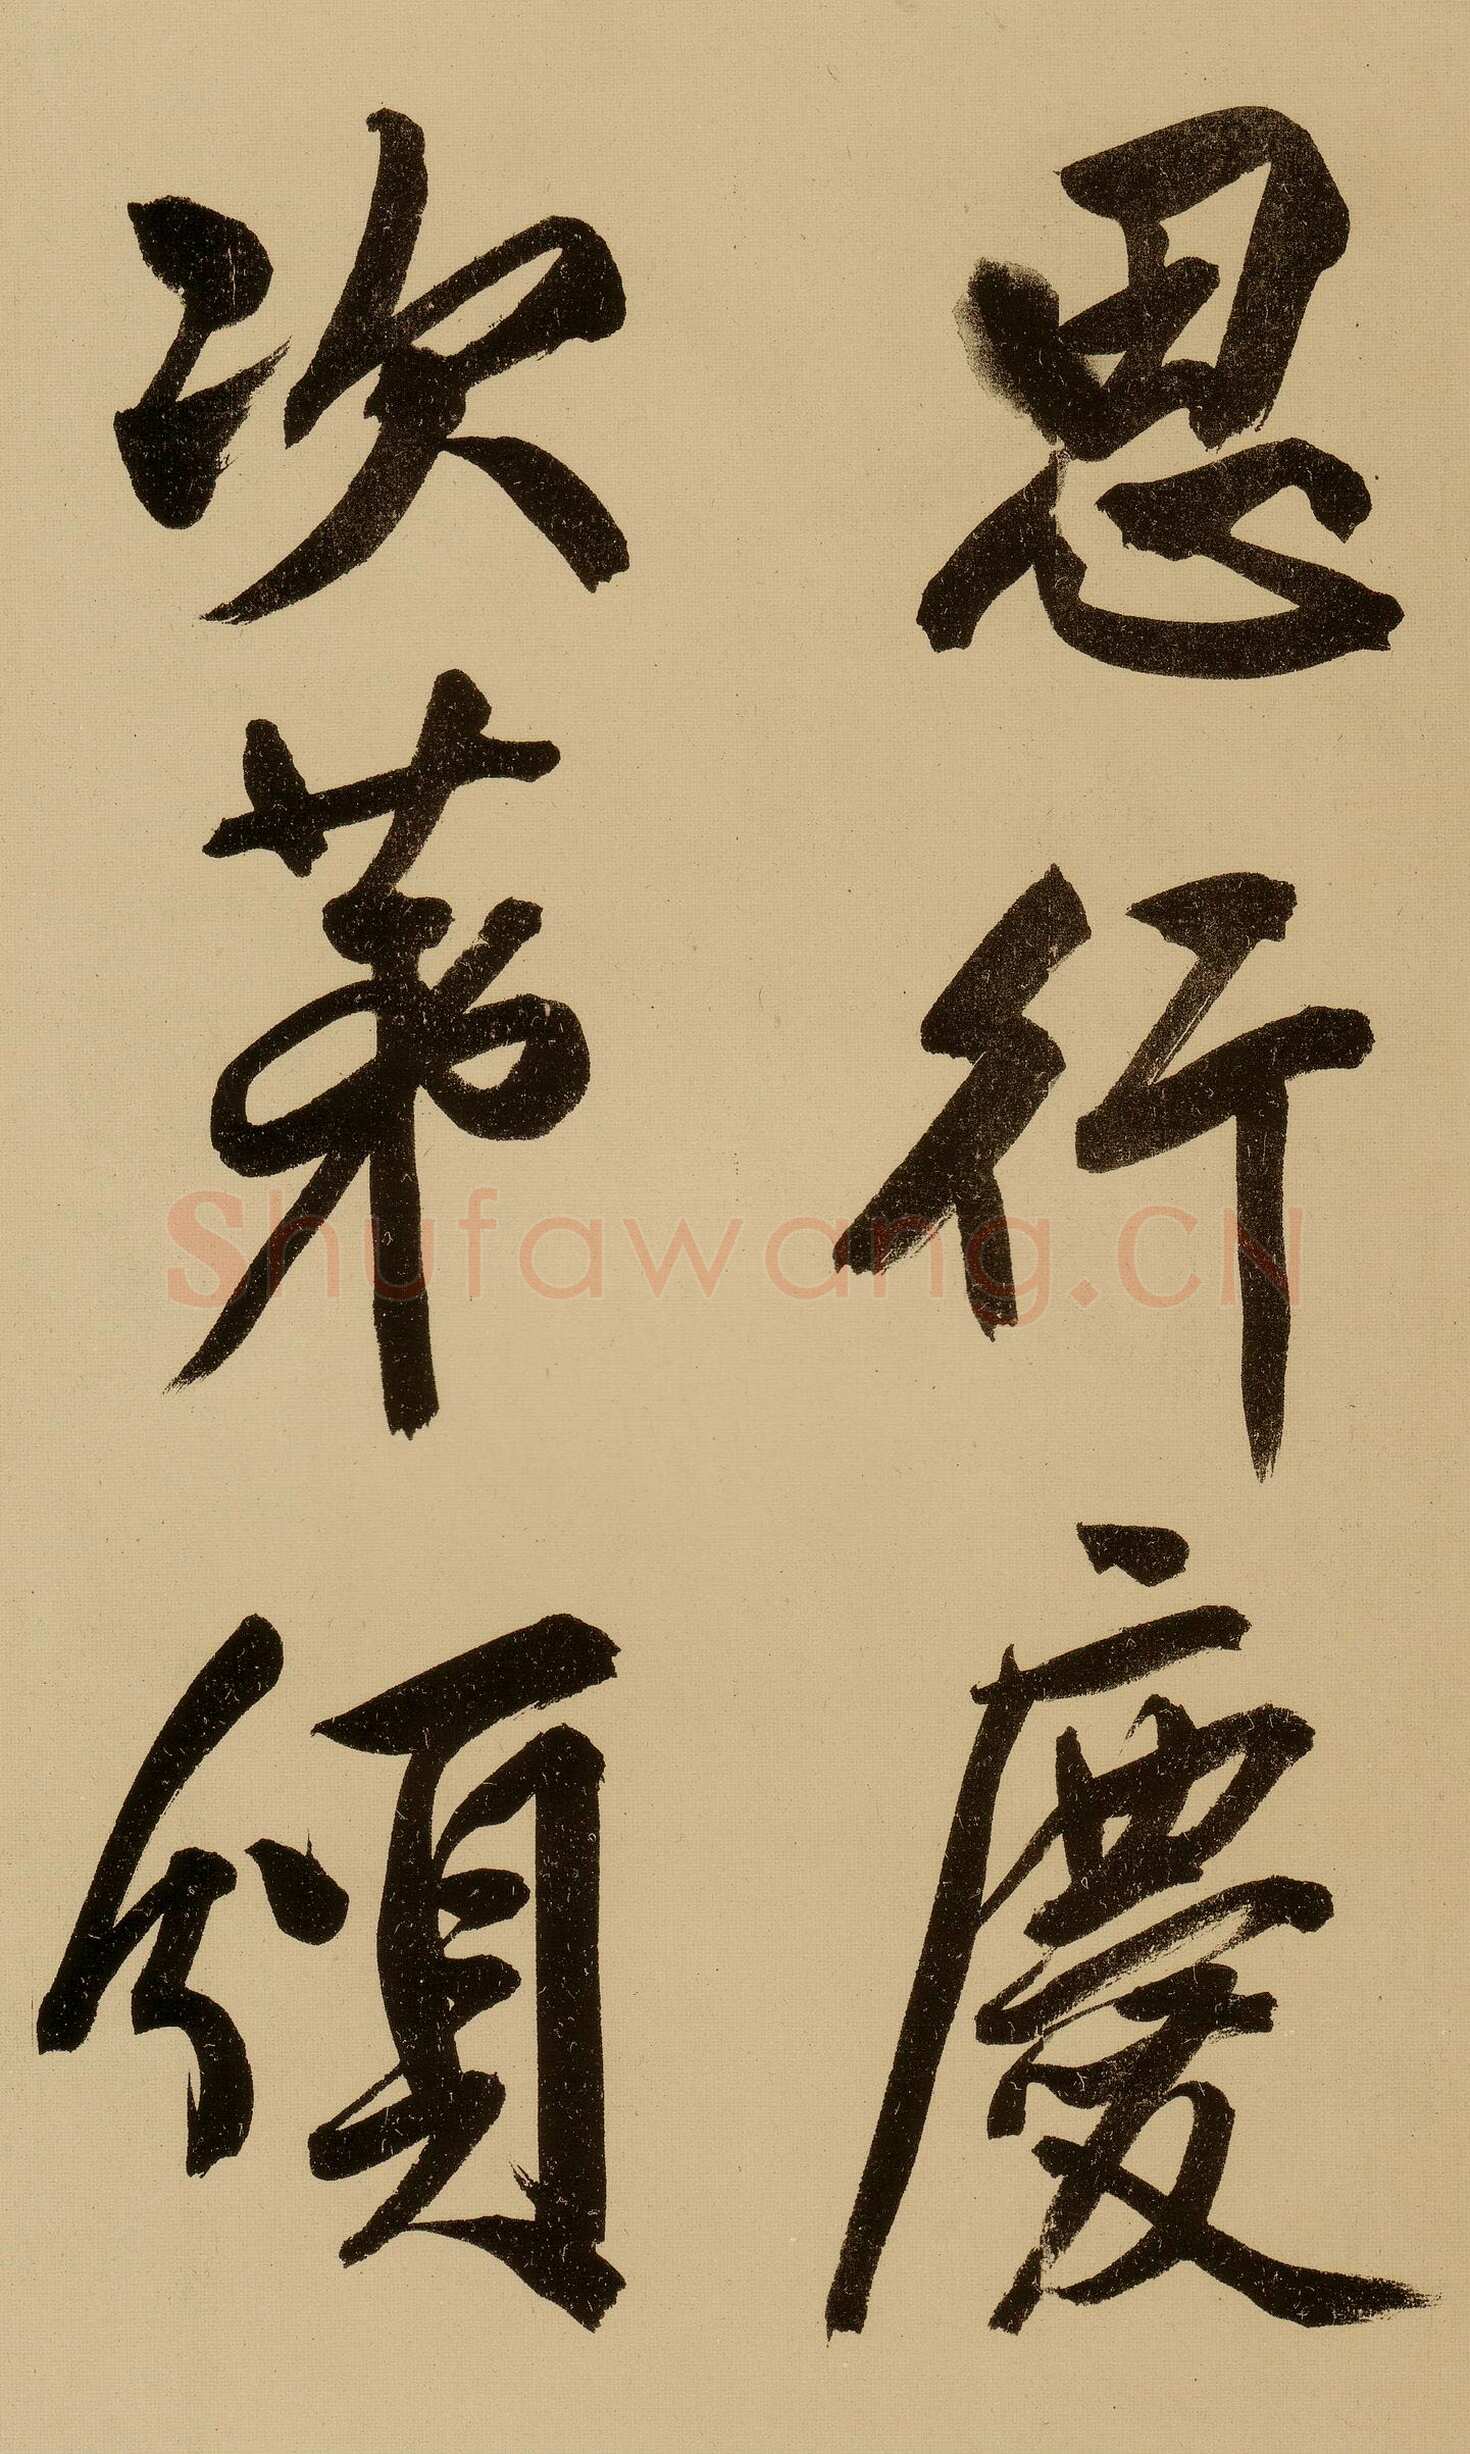 恩行慶
次第頒
Shufawang.CN